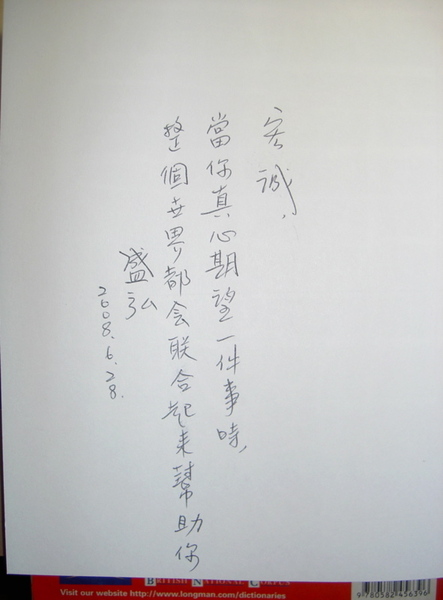 宏誠,
當你真心期望一件事時,
整個世界都会联合起来幫助你
盛弘
2008.6.28.
BRITISH NATIONAL CORPUS
Visit our website http://www.longman.com/dictionaries
9780582456396